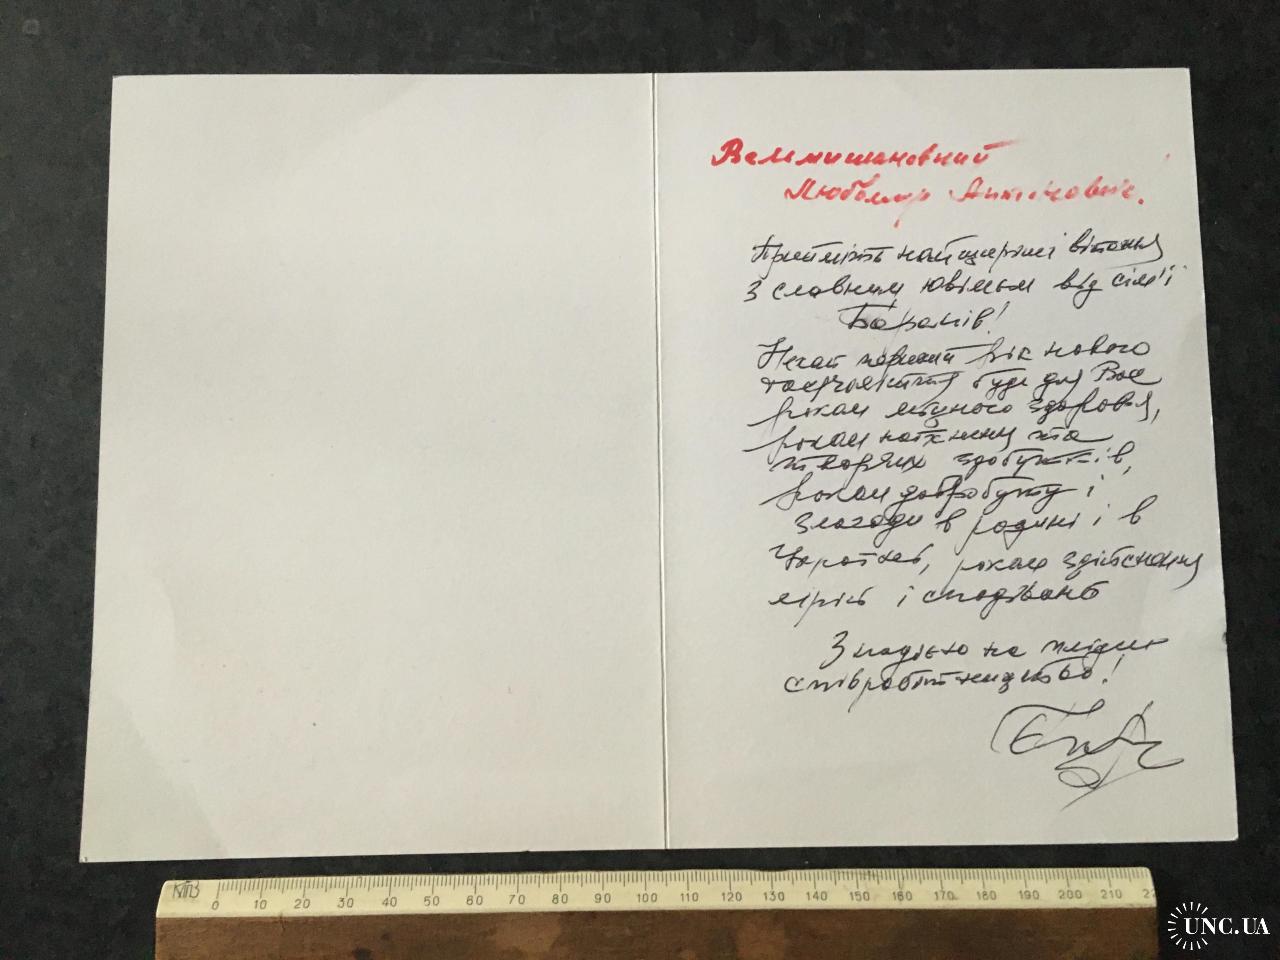 Вельмишановний
Любомир Антонович.
Прийміть найщиріші вітання
З славним ювілеєм від сім'ї
Баранів!
Нехай перший рік нового
тисячоліття буде для Вас
роком міцного здоров'я,
роком натхнення та
творчих здобутків,
роком добробуту і
злагоди в родині і в
Україні, роком здійснення
мрій і сподівань
З надією на плідне
співробітництво!
КПВ
0 10 20 30 40 50 60 70 80 90 100 110 120 130 140 150 160 170 180 190 200 210 22
UNC.UA